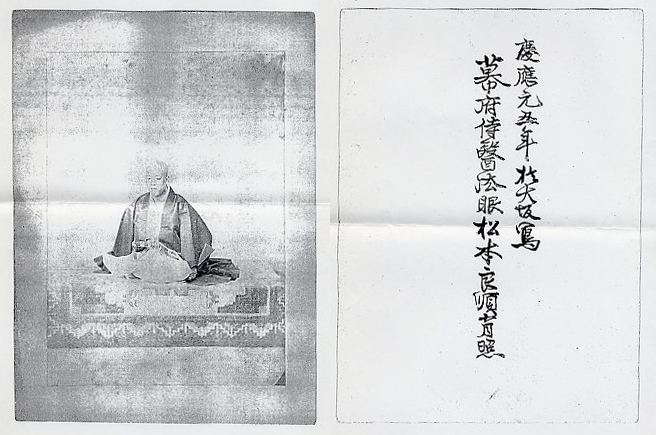 慶應元丑年於大坂寫
幕府侍醫法眼松本良順肖照